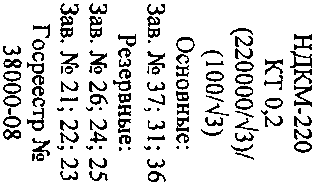 НДКМ-220
КТ 0,2
(220000/√3)/
(100/√3)
Основные:
Зав. № 37; 31; 36
Резервные:
Зав. № 26; 24; 25
Зав. № 21; 22; 23
Госреестр №
38000-08